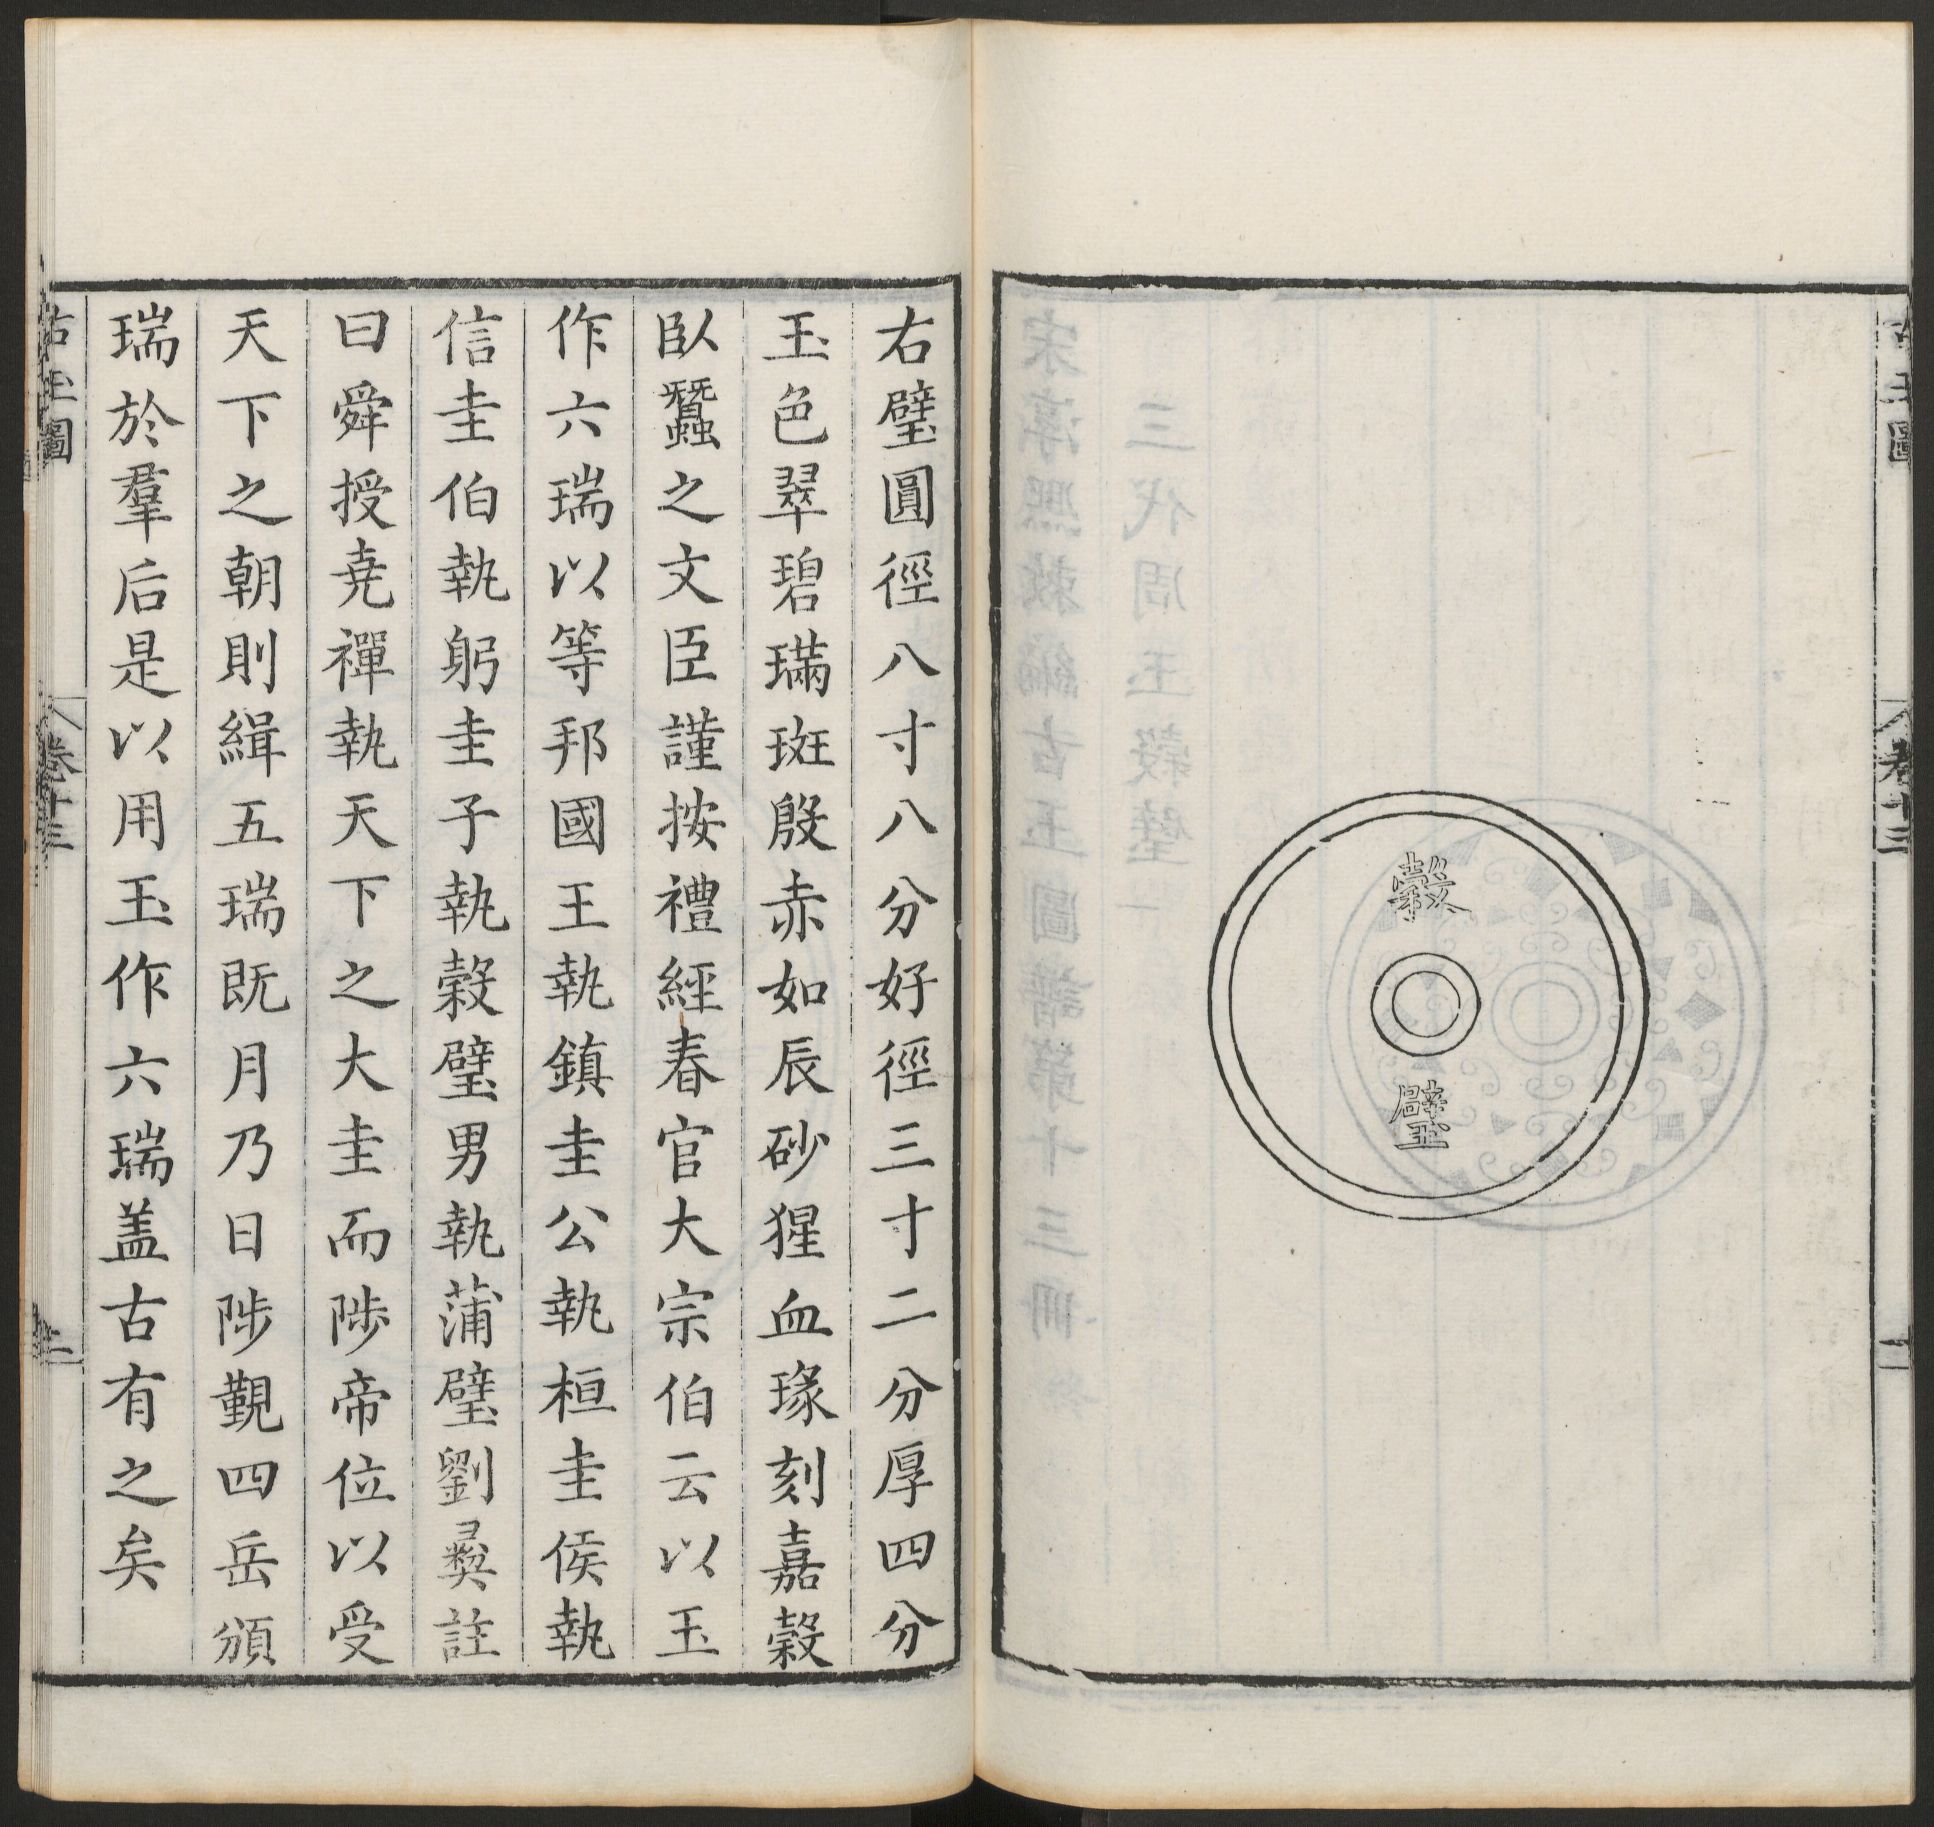 穀
璧
右璧圓徑八寸八分好徑三寸二分厚四分
玉色翠碧璊斑殷赤如辰砂猩血瑑刻嘉穀
臥蠶之文臣謹按禮經春官大宗伯云以玉
作六瑞以等邦國王執鎮圭公執桓圭侯執
信圭伯執躬圭子執穀璧男執蒲璧劉彝註
曰舜授堯禪執天下之大圭而陟帝位以受
天下之朝則緝五瑞既月乃日陟覲四岳頒
瑞於羣后是以用玉作六瑞盖古有之矣
古玉圖
卷十三
二